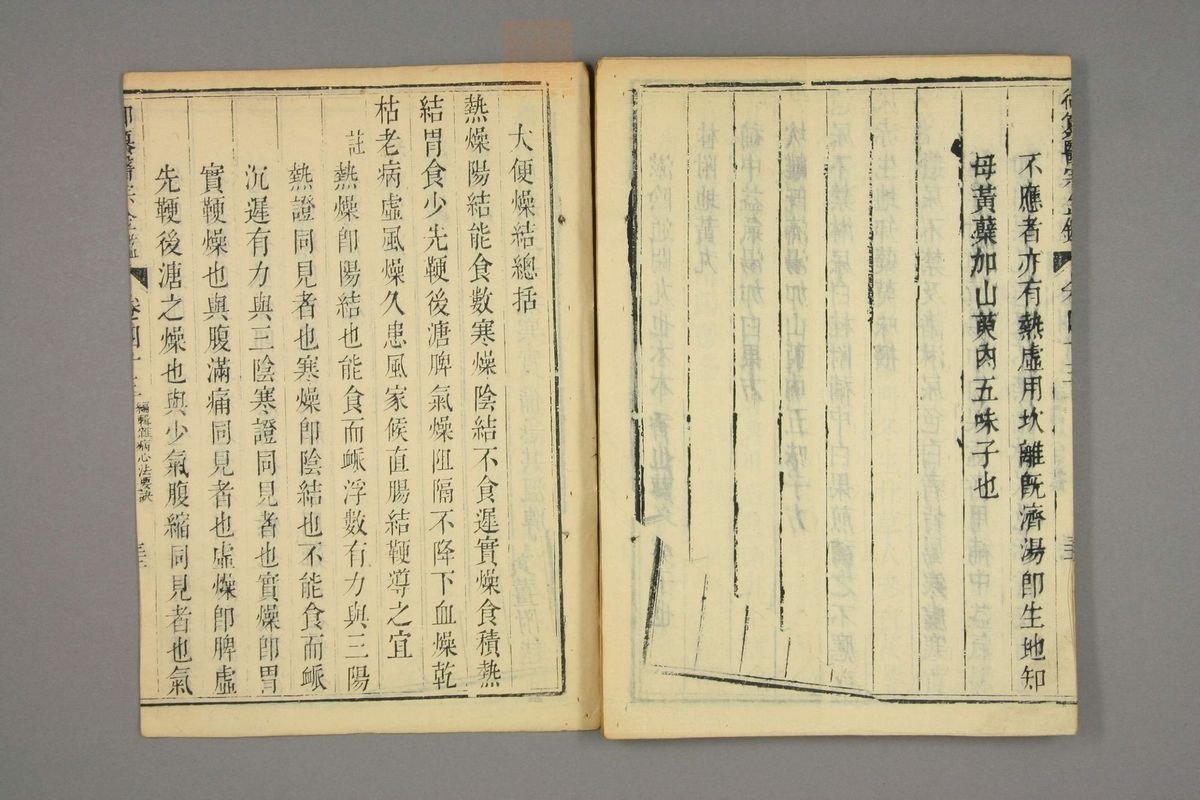 御纂醫宗金鑑
不應者亦有熱虛用坎離旣濟湯卽生地知
母黃蘗加山萸肉五味子也
大便燥結總括
熱燥陽結能食數寒燥陰結不食遲實燥食積熱
結胃食少先鞕後溏脾氣燥阻隔不降下血燥乾
枯老病虛風燥久患風家候直腸結鞕導之宜
註熱燥卽陽結也能食而脈浮數有力與三陽
熱證同見者也寒燥卽陰結也不能食而脈
沉遲有力與三陰寒證同見者也實燥卽胃
實鞕燥也與腹滿痛同見者也虛燥卽脾虛
先鞕後溏之燥也與少氣腹縮同見者也氣
御纂醫宗金鑑 卷四十三 編輯雜病心法要訣